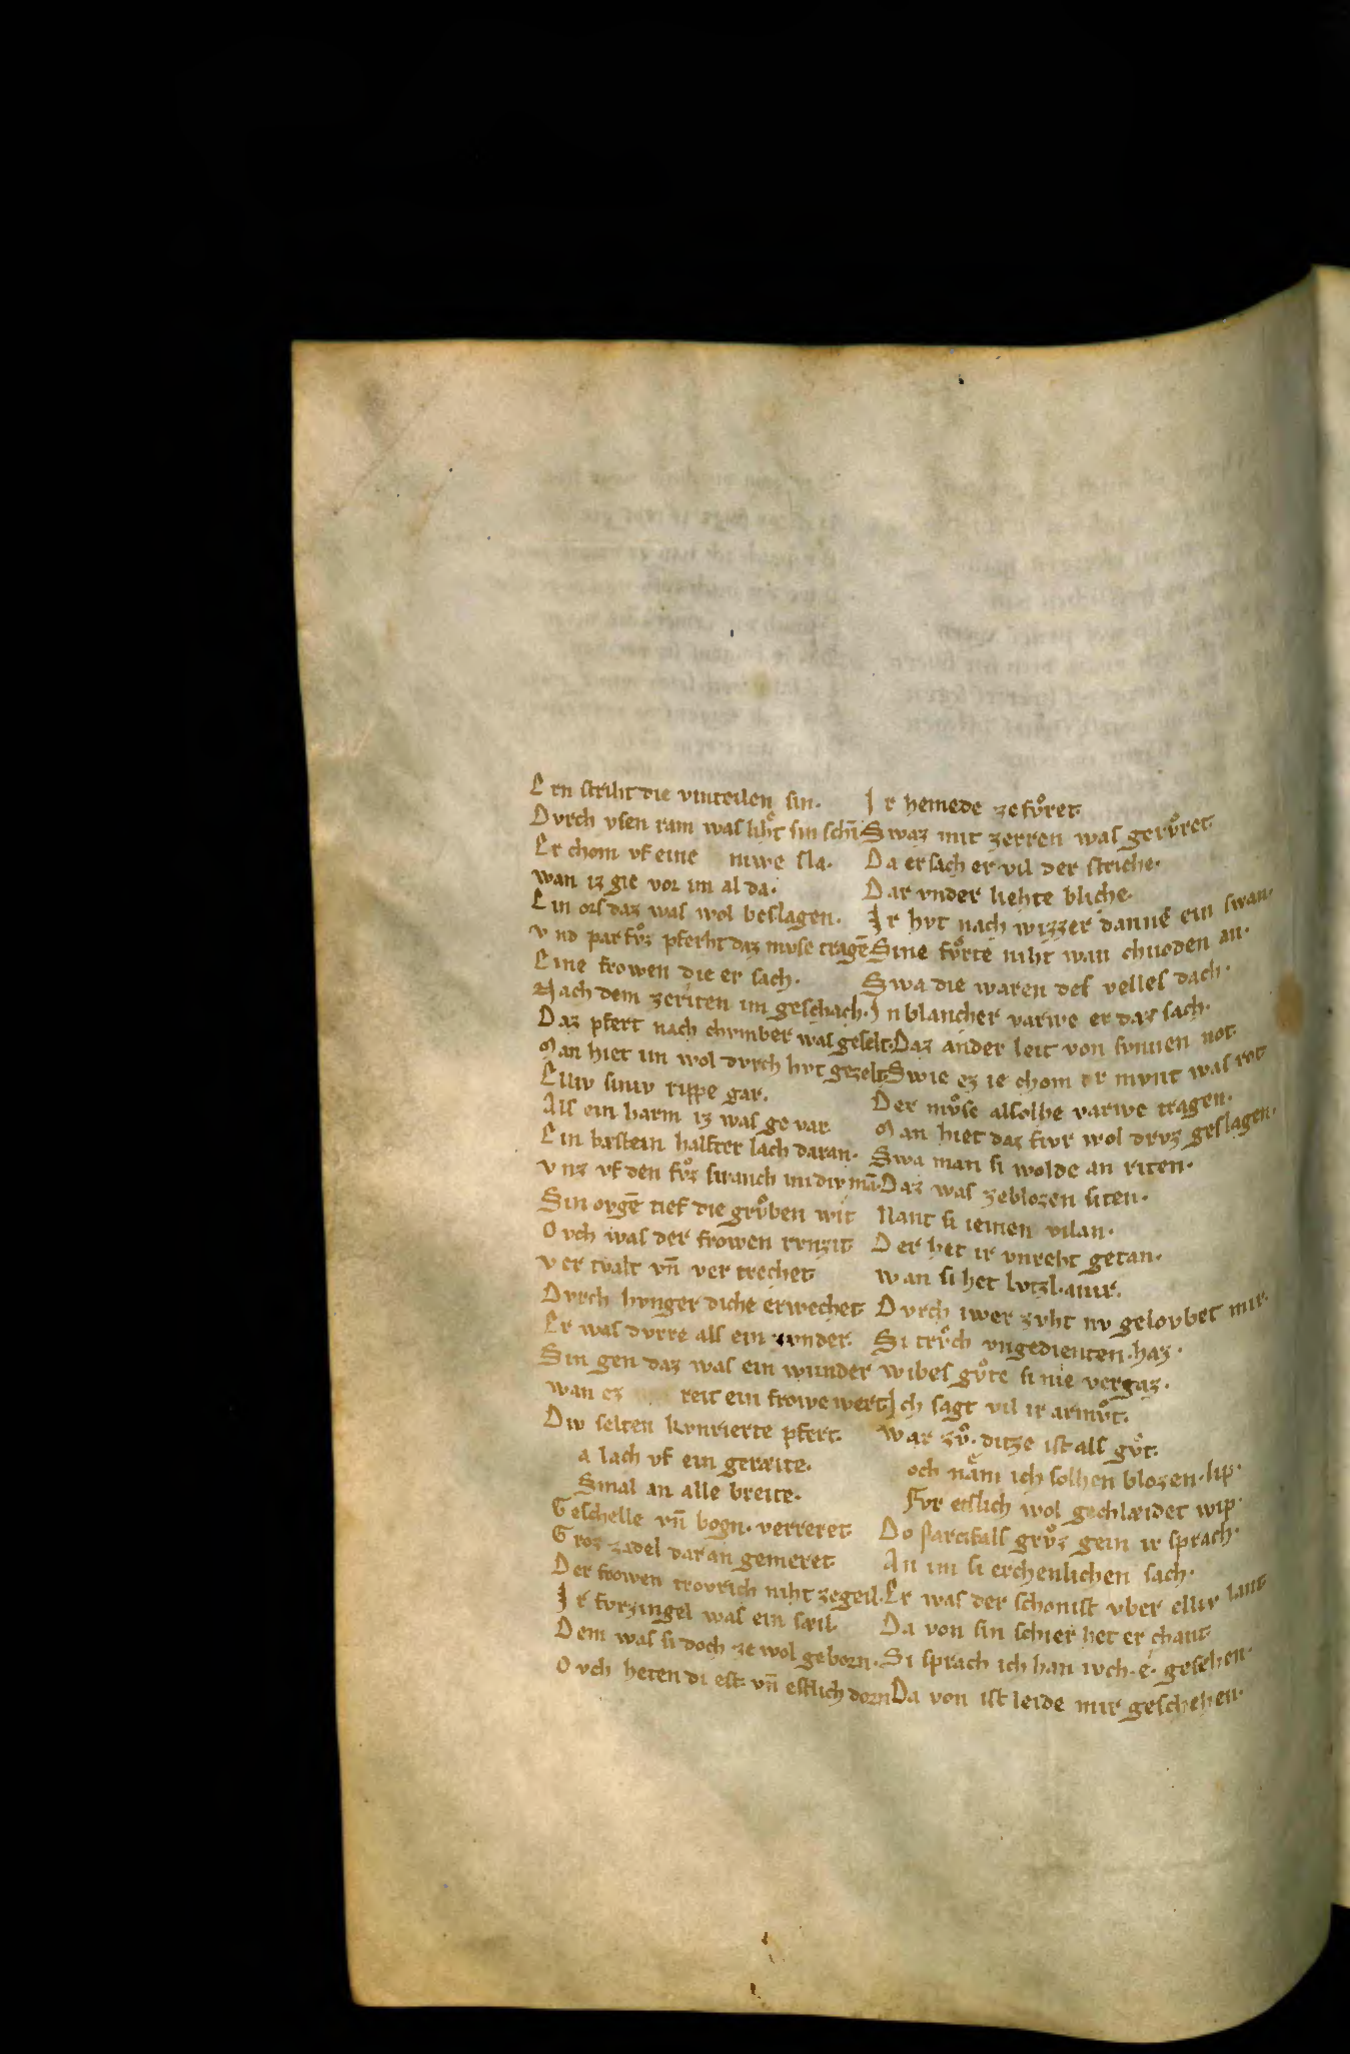 E rn striht die vinteilen sin.
D vrch ysen ram was liht sin schin̄
E r chom vf eine niwe sla.
wan iz gie vor im al da.
E in ors daz was wol beslagen.
v nd parfvͦz pferht daz mvse tragē
E ine frowen die er sach.
N ach dem zeriten im geschach.
D az pfert nach chvmber was geselt.
M an hiet im wol dvrch hvt gezelt
E lliv siniv rippe gar.
A ls ein harm iz was gevar
E in bæstein halfter lach daran.
v nz vf den fvͦz swanch im div mā.
S in ovgē tief die grvͦben wit
O vch was der frowen rvnzit
v er tvalt vn̄ ver trechet
D vrch hvnger diche erwechet
E r was dvrre als ein zvnder.
S in gen daz was ein wunder
wan ez reit ein frowe wert
D iv selten kvnrierte pfert.
a lach vf ein geræite.
Smal an alle breite.
G eschelle vn̄ bogn. verreret
G roz zadel daran gemeret
D er frowen trovrich niht zegeil.
I r fvrzingel was ein sæil.
D em was si doch ze wol geborn.
O vch heten di est vn̄ etslich dorn
I r hemede zefvͦret
S waz mit zerren was gervͦret
D a er sach er vil der striche.
D ar vnder liehte bliche.
I r hvt nach wizzer danne ein swan.
S ine fvͦrte niht wan chnoden an.
S wa die waren des velles dach.
I n blancher varwe er daz sach.
D az ander leit von svnnen not
S wie ez ie chom ir mvnt was rot
D er mvͦse alsolhe varwe tragen.
M an hiet daz fivr wol drvz geslagen.
S wa man si wolde an riten.
D az was zeblozen siten.
N ant si iemen vilan.
D er het ir vnreht getan.
w an si het lvtzl. an ir.
D vrch iwer zvht nv gelovbet mir.
S i trvͦch vngedienten. haz.
w ibes gvͦte si nie vergaz.
I ch sagt vil ir armvͦt.
w ar zvͦ. ditze ist als gvͦt.
och næm ich solhen blozen. lip.
Fvr etslich wol gechlæidet wip.
D o parcifals grvͦz gein ir sprach.
A n im si erchenlichen sach.
E r was der schonist vber elliv lant
D a von sin schier het er chant
S i sprach ich han ivch. e. gesehen.
D a von ist leide mir geschehen.